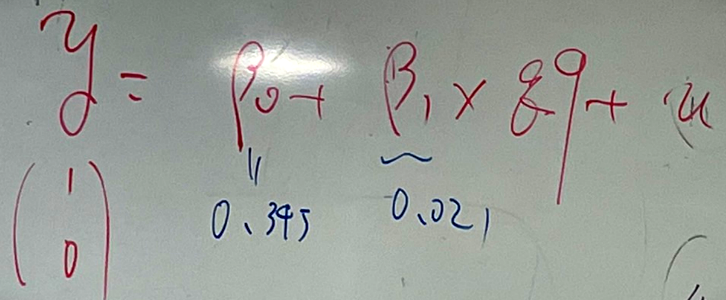 y = β₀ + β₁ × 89 + u
(1
0)
0.395
0.021